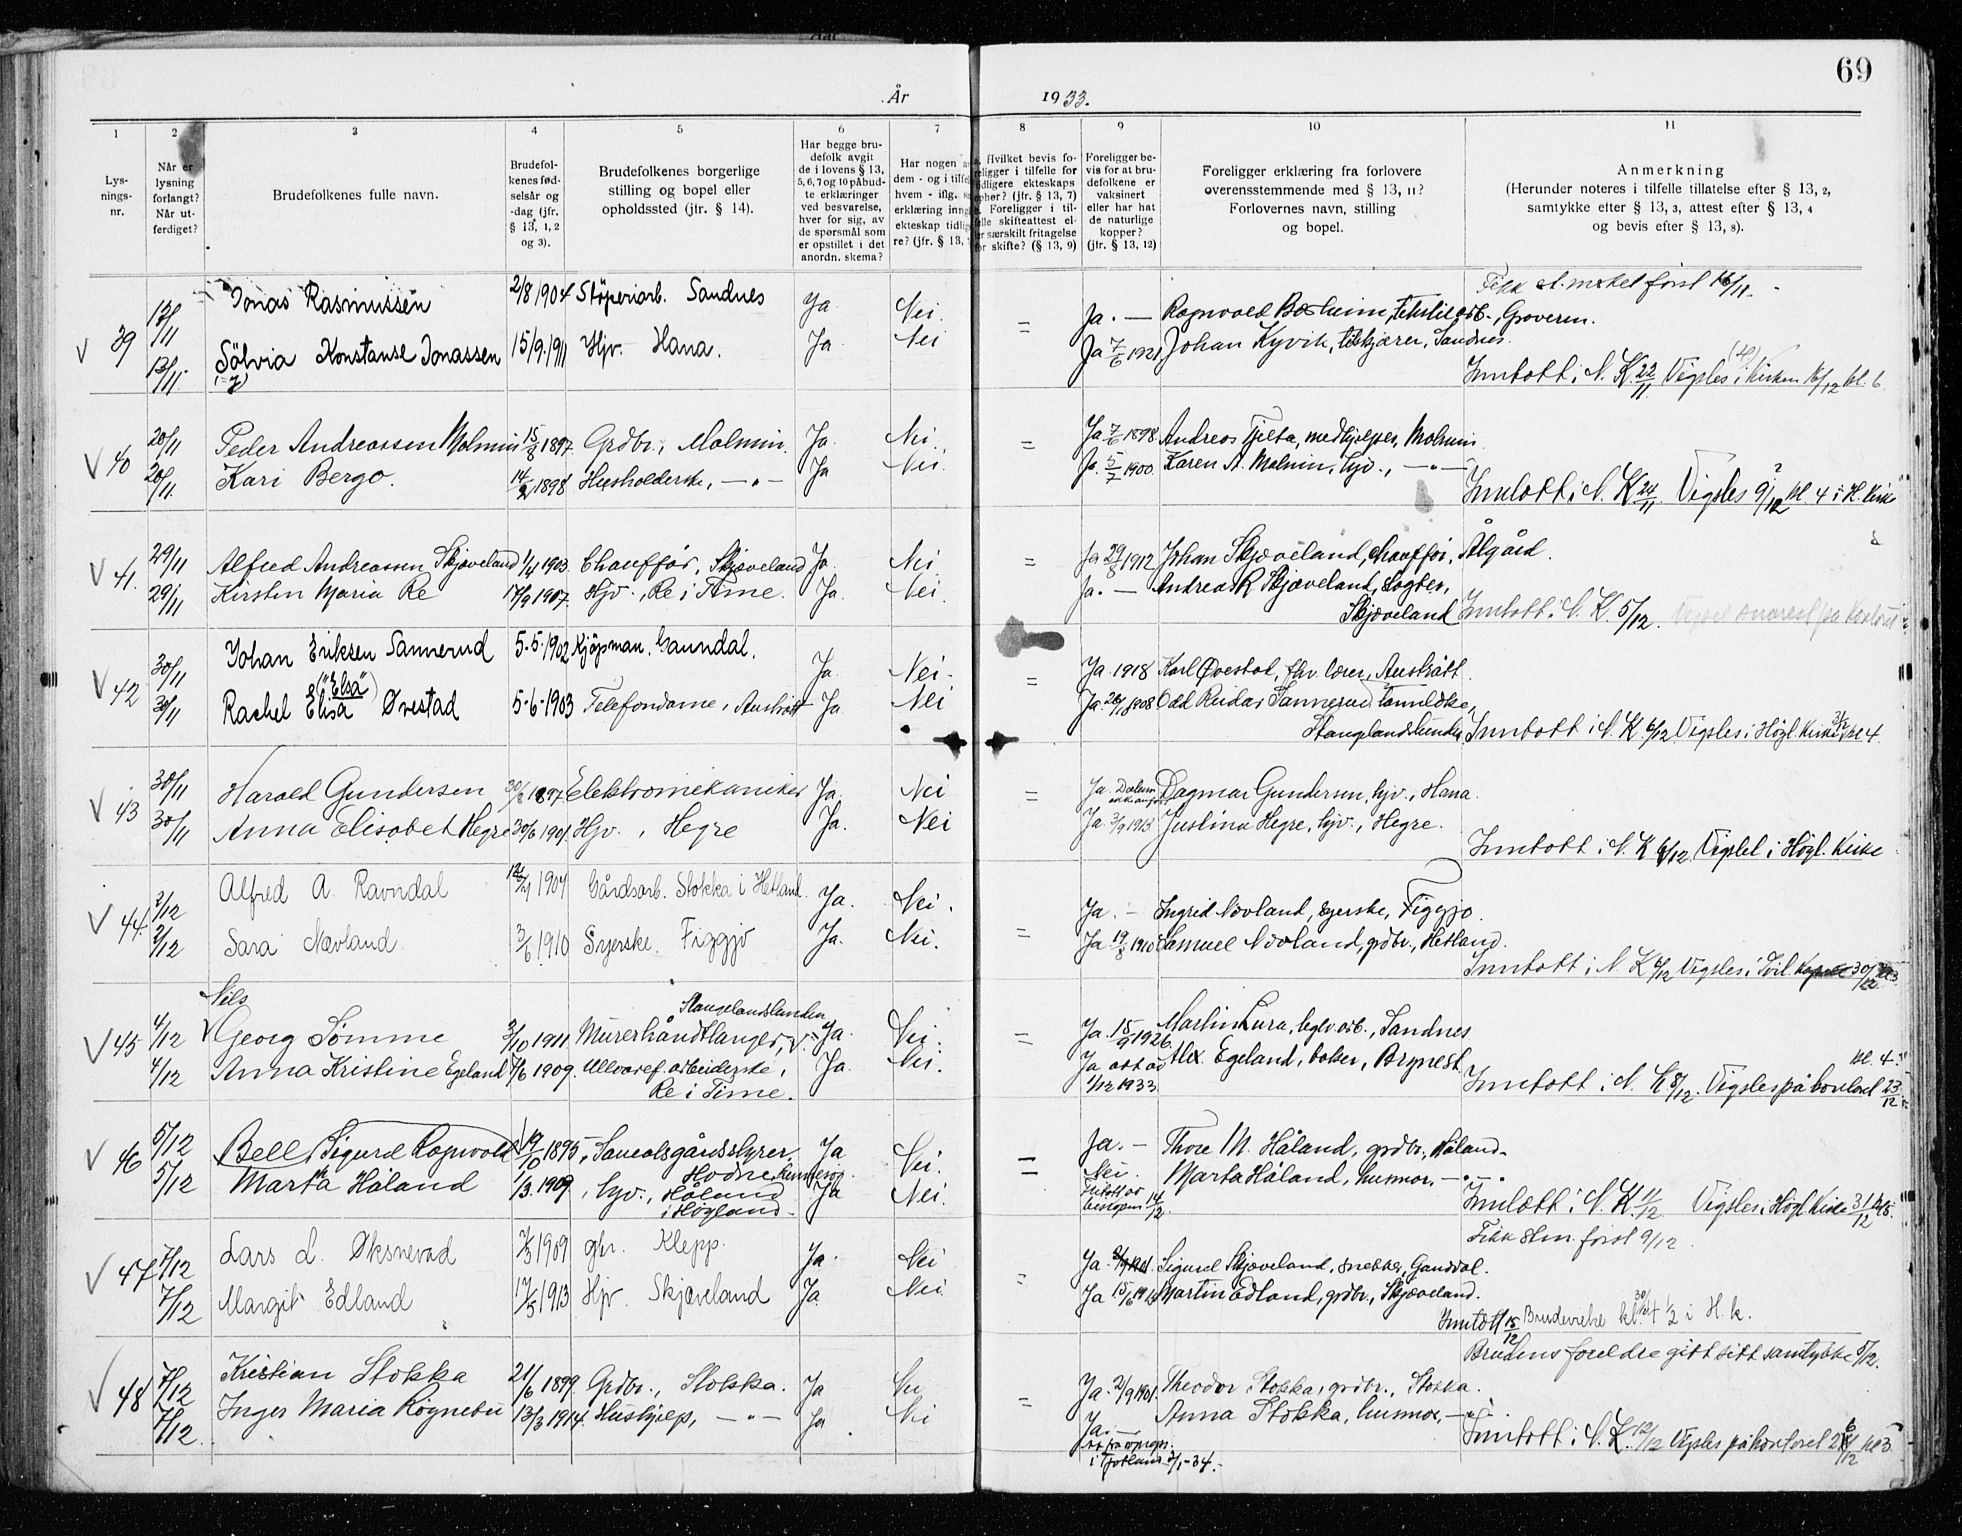 69
År 1933.
1 2 3 4 5 6 7 8 9 10 11
Lysningsnr.
Når er lysning forlangt? Når utferdiget?
Brudefolkenes fulle navn.
Brudefolkenes fødselsår og -dag (jfr. § 13, 1, 2 og 3).
Brudefolkenes borgerlige stilling og bopel eller opholdssted (jfr. § 14).
Har begge brudefolk avgit de i lovens § 13, 5, 6, 7 og 10 påbudte erklæringer ved besvarelse, hver for sig, av de spørsmål som er opstillet i det anordn. skema?
Har nogen a dem - og i tilfe hvem - iflg. s erklæring inng ekteskap tidlig re? (jfr. § 13,
Hvilket bevis fo- religger i tilfelle for idligere ekteskaps ophør? (jfr. § 13, 7) Foreligger i til- felle skifteattest el- er særskilt fritagelse for skifte? (§ 13, 9)
Foreligger bevis for at brudefolkene er vaksinert eller har hat de naturlige kopper? (jfr. § 13, 12)
Foreligger erklæring fra forlovere overensstemmende med § 13, 11? Forlovernes navn, stilling og bopel.
Anmerkning
(Herunder noteres i tilfelle tillatelse efter § 13, 2, samtykke efter § 13, 3, attest efter § 13, 4 og bevis efter § 13, 8).
Fikk först 16/11.
39 13/11 Jonas Rasmussen 2/8 1904 Støperiarb. Sandnes Ja Nei. = Ja. — Ragnvald tekstilarb., Graveren.
13/11. Sölvia Konstanse Jonassen 15/9. 1911 Hjv. Hana. Ja. Nei Ja 7/6 1921 Johan Kyvik, Sandnes.
Inntatt i N. K. 22/11 Vigsles i kirken 16/12 kl. 6
40 20/11 Peder Andreassen Malmin 15/8 1897. Grdbr., Malmin. Ja. Nei. = Ja 7/6 1898 Andreas Tjelta, medhjelper, Malmin.
20/11. Kari Bergo. 1898. Husholderske, —„— Ja Nei. Ja. 5/7 1900 Karen A. Malmin, hjv., —„—
Inntatt i N. K 24/11. Vigsles 9/12 kl. 4 i H. Kirke
41. 29/11 Alfred Andreassen Skjæveland 1/4 1903. Chauffør, Skjæveland Ja. Nei = Ja 29/8 1912 Johan Skjæveland, chauffør, Ålgård.
29/11 Kirsten Maria Re 17/9 1907. Hjv., Re i Time. Ja. Nei. Ja. — Andreas R. Skjæveland,
Skjæveland Inntatt i N. K. 5/12.
42 30/11 Johan Eriksen Sannerud 5-5-1902 Kjøpman. Ganndal. Ja. Nei. = Ja 1918 Karl Øvestad, fhv. lærer, Austrått.
("Elsa")
30/11 Rachel Elisa Øvestad 5-6-1903 Telefondame, Austrått Ja. Nei Odd Reidar Sannerud
Stangelandslunden Inntatt i N. K. 6/12. Vigsles i Högl. Kirke kl 4.
43 30/11 Harald Gundersen 1897. Elektromekaniker Ja. Nei = Ja. Dagmar Gundersen, hjv., Hana.
30/11 Anna Elisabet Hegre 30/6 1901. Hjv., Hegre Ja. Nei Ja 3/9 1913 Justina Hegre, hjv., Hegre.
Inntatt i N. K 6/12 Vigslet i Högl. Kirke
44 2/12 Alfred A. Ravndal 1904 Gårdsarb. Stokka i Hetland Ja. Nei. = Ja. — Ingrid Nævland, syerske, Figgjo.
2/12 Sara Nævland. 3/6 1910 Syerske. Figgjo Ja. Nei. Ja. 19/8 1910 Samuel Nævland, grdbr., Hetland.
Inntatt i N. K 6/12 Vigsles i 30/12
Nils
Stangelandslunden
45 4/12 Georg Sømme 3/10 1911. Murerhåndtlanger, Ja. Nei. = Ja. 15/9 1926 Martin Lura, Sandnes
4/12 Anna Kristine Egeland 7/6 1909. Ullvaref. arbeiderske, Ja. Nei. Ja Alex Egeland, baker, Brynest.
Re i Time. 1/12 1933 kl. 4
Inntatt i N. K 8/12. Vigsles på kontoret 23/12
46 5/12 Bell, Sigurd Ragnvald 19/10 1895, Saueavlsgårdsstyrer, Ja Nei. = Ja. — Thore M. Håland, grdbr., Håland.
5/12 Marta Håland 1/3. 1909, hjv., Håland Ja Nei. Nei. Marta Håland, husmor, —„—
Hodne,
i Högland. 14/12.
Inntatt i N. K. 11/12 Vigsles i Högl Kirke 31/12 kl 5.
Fikk først 9/12.
47 7/12 Lars L. Øksnevad 1909 gbr. Klepp. Ja. Nei = Ja. Sigurd Skjæveland, snekker, Ganddal.
7/12 Margit Edland 17/5 1913 Hjv. Skjæveland Ja Nei. Ja 15/6 Martin Edland, grdbr., Skjæveland.
Inntatt 15/12 Brudevielse kl. 4 1/2 i H. k.
Brudens foreldre gitt sitt samtykke 5/12.
48 7/12 Kristian Stokka 21/6 1899. Grdbr., Stokka. Ja Nei = Ja. 2/9 1901. Theodor Stokka, grdbr., Stokka.
7/12. Inger Maria Rögnebu 13/3 1914. Hushjelp, —„— Ja. Nei Ja. — Anna Stokka, husmor, —„—
Inntatt i N. K. 12/12 Vigsles på kontoret kl 3.